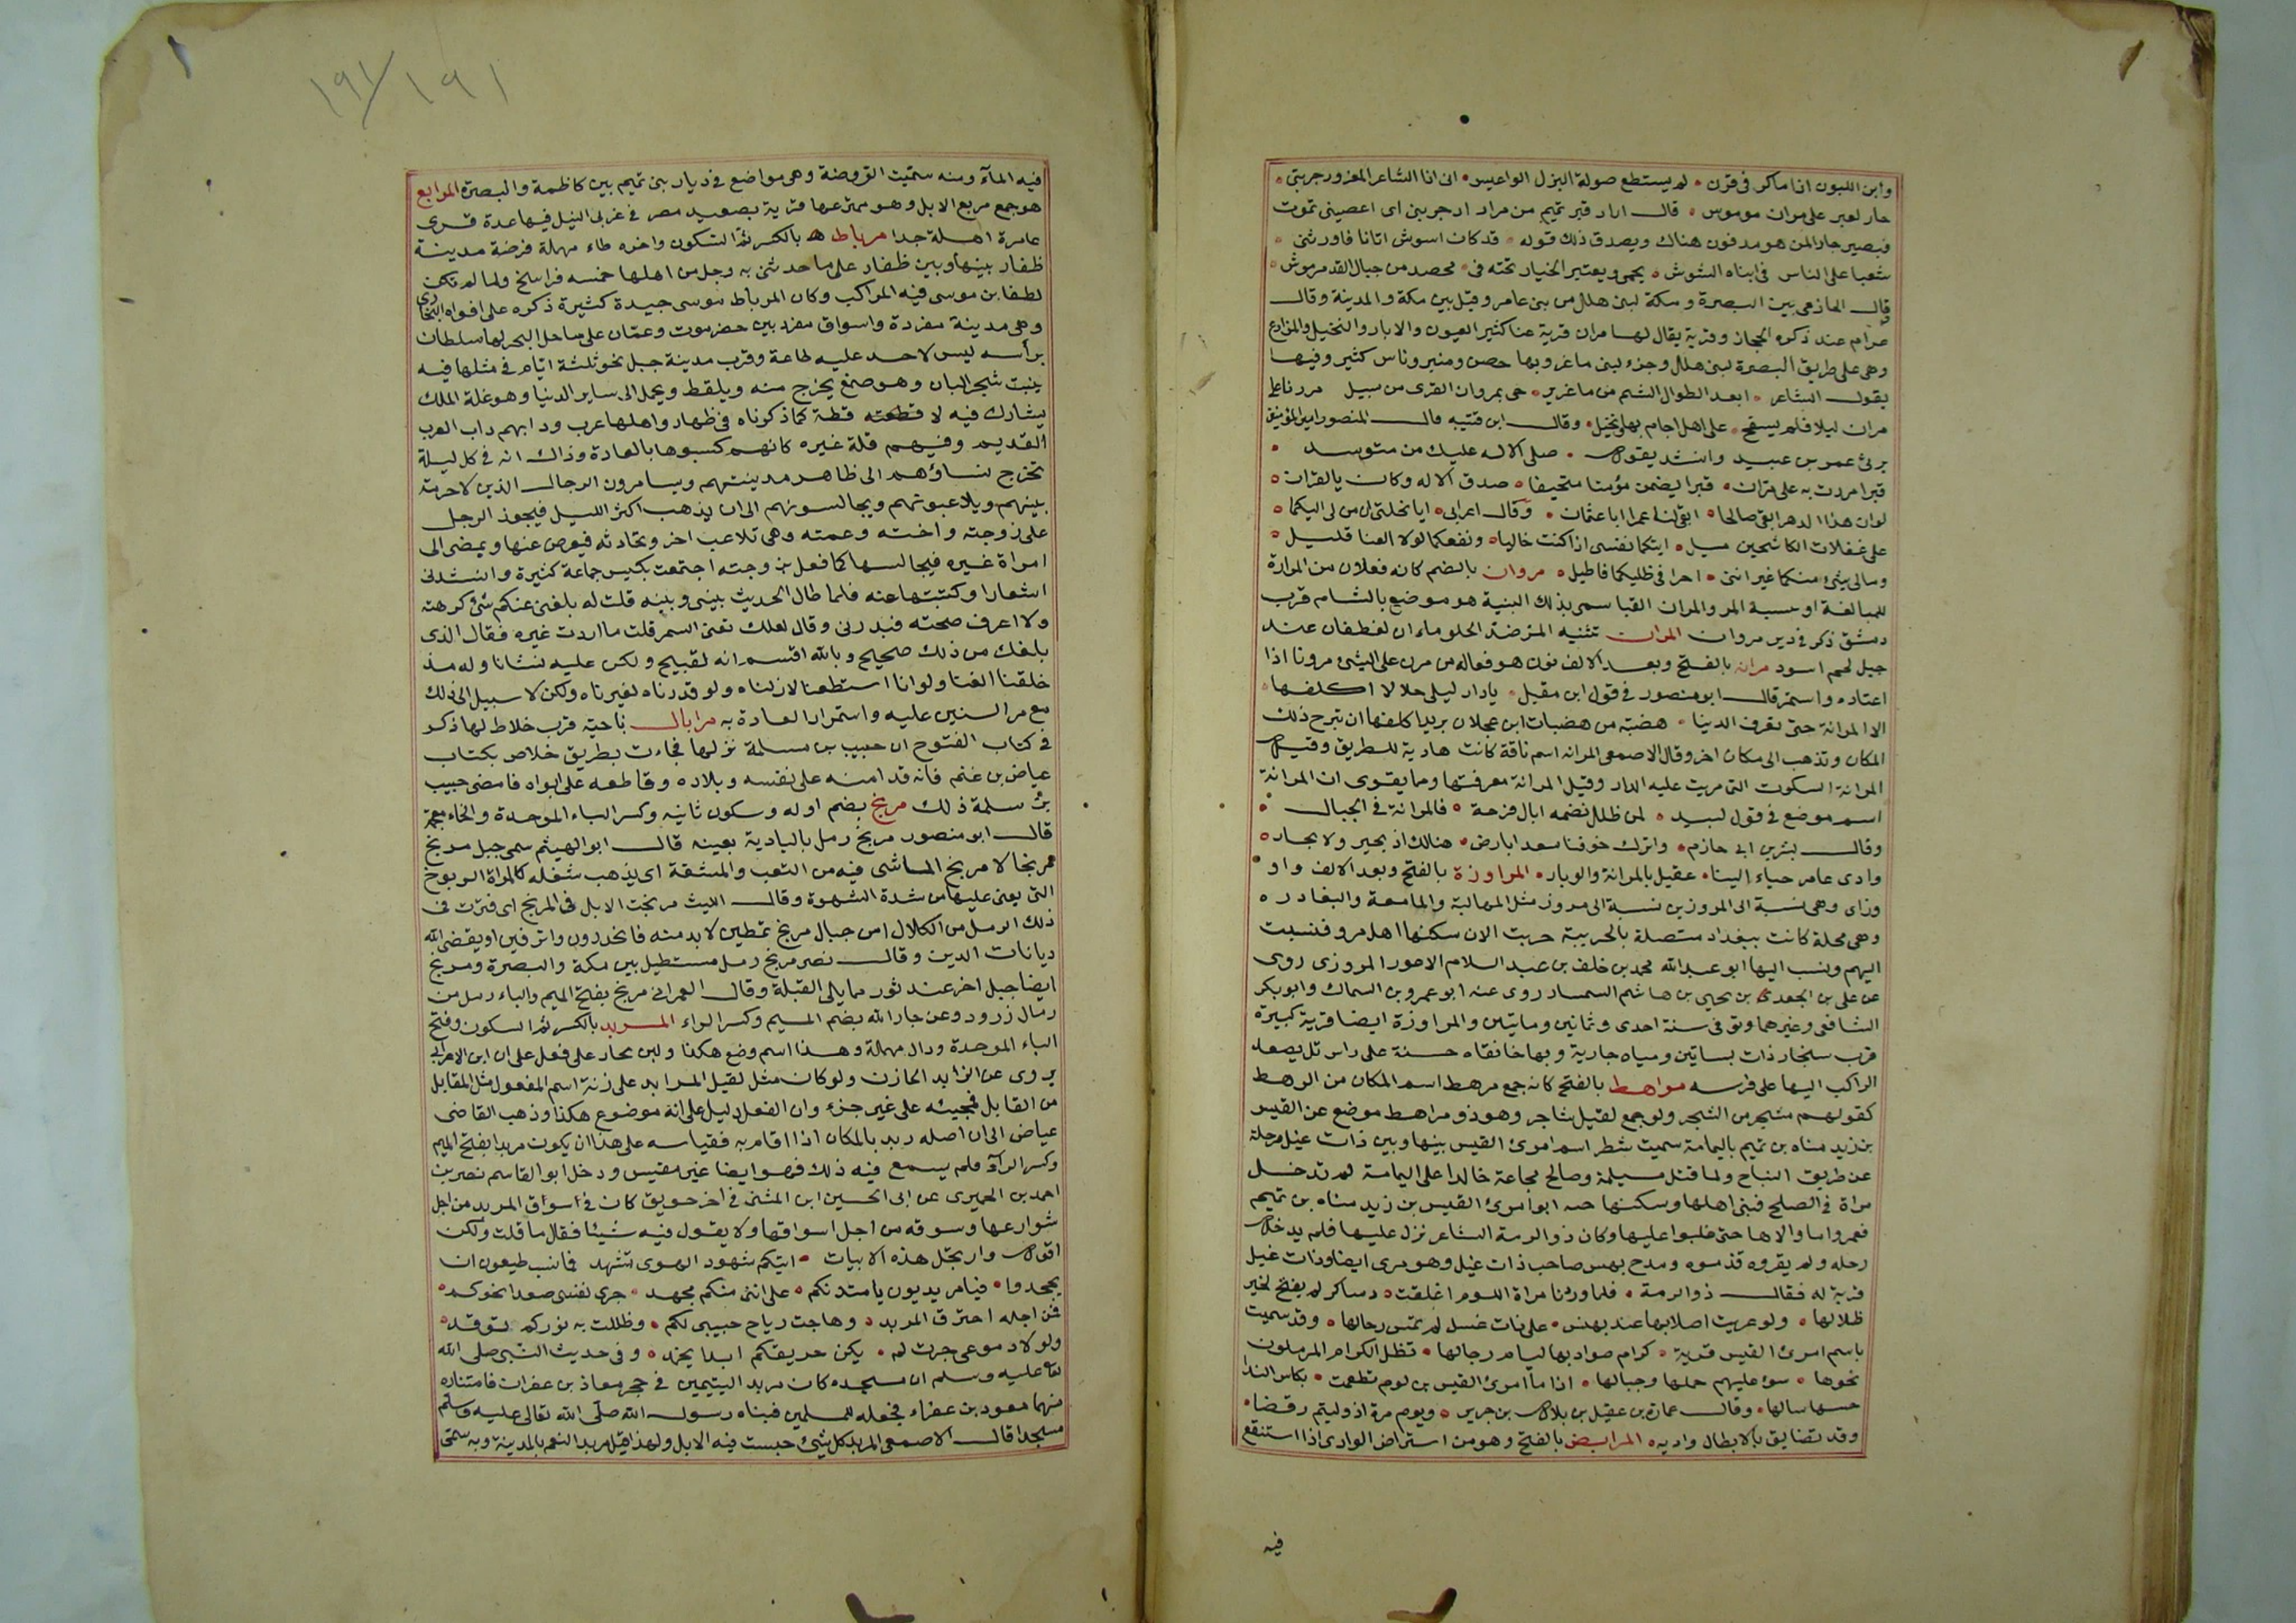 وابن اللبون اذا ماكر فى قرن ٠ لم يستطع صولة البزل الواعيس ٠ انى انا الشاعر المغرور جربتى ٠
جار لعبر على مران موموس ٠ قال اراد قبر تميم من مراد ادجربنى اى اعصينى تموت
فبصير جار المن هو مدفون هناك ويصدق ذلك قوله ٠ قد كان اسوش اتانا فاورثنى ٠
شعبا على الناس فى ابناه الشوش ٠ يحمى ويعتبر الخيار تحته فى ٠ محصد من جبال القد مرموش ٠
قال الحازمى بين البصرة ومكة لبنى هلال من بنى عامر وقيل بين مكة والمدينة وقال
عرام عند ذكره الحجاز وقرية يقال لها مران قرية عنا كثير العيون والابار والنخيل والمزارع
وهى على طريق البصرة لبنى هلال وجزء لبنى ماعز وبها حصن ومنبر وناس كثير وفيها
يقول الشاعر ٠ ابعد الطوال الشم من ماعزير ٠ حى بمروان القرى من سبيل مررنا على
مران ليلا فلم يسفح ٠ على اهل اجام بها ونخيل ٠ وقال ابن قتيبه قال المنصور امير المؤمنين
برئ عمرو بن عبيد وانشد يقول ٠ صلى الاله عليك من متوسد ٠
قبرا مررت به على مران ٠ قبرا يضمن مؤمنا متحيفا ٠ صدق الاله وكان بالقران ٠
لوان هذا الدهر ابقى صالحا ٠ ابقى لنا عمرا ابا عثمان ٠ وقال اعرابى ٠ ايا نخلتى ال من لى اليكما ٠
على غفلات الكاشحين سبيل ٠ ايتكما نفسى اذا كنت خاليا ٠ ونفعكما لولا العنا قليل ٠
ومالى شئ منكما غير اننى ٠ احرا فى ظليكما فاطيل ٠ مروان بالضم كانه فعلان من المرارة
للمبالغة او سمية المر والمران القبا سمى بذلك البنية هو موضع بالشام قرب
دمشق ذكر فى دير مروان المران تثنيه المر ضد الحلو ماءان لغطفان عند
جبل لهم اسود مرانه بالفتح وبعد الالف نون هو فعاله من مرن على الشئ مرونا اذا
اعتاده واستمر قال ابو منصور فى قول ابن مقبل ٠ يا دار ليلى خلا لا اكلفها ٠
الا المرانة حتى تعرف الدينا ٠ هضبة من هضبات ابن عجلان يريد اكلفها ان تبرح ذلك
المكان وتذهب الى مكان اخر وقال الاصمعى المرانه اسم ناقة كانت هادية للطريق وقيل
المرانة السكوت التى مريت عليه الدار وقيل المرانة معرفتها ومما يقوى ان المرانة
اسم موضع فى قول لبيد ٠ لمن طلل تضمه ابال قزحة ٠ فالمرانة فى الجبال ٠
وقال بشر بن ابى حازم ٠ واترك خوفنا سعدا بارض ٠ هنالك اذ بحير ولا بجار ٠
وادى عامر حباء الينا ٠ عقيل بالمرانة والوبار ٠ المراوزة بالفتح وبعد الالف واو ٠
وزاى وهى نسبة الى المروزين نسبة الى مروز مثل المهالبة والمامعة والبغادره
وهى محلة كانت ببغداد متصلة بالحربية حربت الان سكنها اهل مرو فنسبت
اليهم ونسب اليها ابو عبد الله محمد بن خلف بن عبد السلام الاعور المروزى روى
عن على بن الجعدى بن يحيى بن هاشم السمسار روى عنه ابو عمرو بن السماك وابو بكر
الشافعى وغيرهما وتوفى سنة احدى وثمانين ومايتين والمراوزة ايضا قرية كبيرة
قرب سنجار ذات بساتين ومياه جارية وبها خانقاه حسنة على راس تل يصعد
الراكب اليها على فرسه مواهط بالفتح كانه جمع مرهط اسم المكان من الرهط
كقولهم مشجر من الشجر ولو جمع لقيل شاجر وهو ذو مراهط موضع عن القيس
بن زيد مناه بن تميم باليمامة سميت شطر اسم امرئ القيس بينها وبين ذات غيل مرحلة
عن طريق النباح ولما قتل مسيلمة وصالح مجاعة خالدا على اليمامة لم تدخل
مراة فى الصلح فبنى اهلها وسكنها حسه ابو امرئ القيس بن زيد مناه بن تميم
فعمروا ما والاها حتى غلبوا عليها وكان ذو الرمة الشاعر نزل عليها فلم يدخل
رحله ولم يقروه فذموه ومدح بهس صاحب ذات غيل وهو مرى ايضا وذات غيل
قرية له فقال ذو الرمة ٠ فلما وردنا مراة اللوم اغلقت ٠ دساكر لم يفتح لخير
ظلالها ٠ ولو عريت اصلابها عند بهنس ٠ على ذات غسل لم تمس رحالها ٠ وقد سميت
باسم امرئ القيس قرية ٠ كرام صوادبها ليام رجالها ٠ تظل الكرام المرملون
نحوها ٠ سوء عليهم حملها وجبالها ٠ اذا ما امرئ القيس بن لوم تطعمت ٠ بكاس الندا
حسها سالها ٠ وقال عمارة بن عقيل بن بلال بن جرير ٠ ويوم مرة اذ وليتم رقضا ٠
وقد تضايق بالابطال واديه ٠ المرابض بالفتح وهو من استراض الوادى اذا استنقع
فيه
١٩١/١٩١
فيه المآء ومنه سميت الروضة وهى مواضع فى ديار بنى تميم بين كاظمة والبصرة المرابع
هو جمع مربع الابل وهو ممتر عها قرية بصعيد مصر فى غربى النيل فيها عدة قرى
عامرة اهلة جدا مرباط ه بالكسر ثم السكون واخره طاء مهملة فرضة مدينة
ظفار بينها وبين ظفار على ما حدثنى به رجل من اهلها خمسه فراسخ ولما لم تكن
لظفا بن موسى فيه المراكب وكان المرباط موسى جيدة كثيرة ذكره على افواه التجارى
وهى مدينة مفردة واسواق مفرد بين حضرموت وعمان على ساحل البحر لها سلطان
براسه ليس لاحد عليه طاعة وقرب مدينة جبل نحو ثلثة ايام فى مثلها فيه
ينبت شجر اللبان وهو صمغ يخرج منه ويلقط ويحمل الى ساير الدنيا وهو غلة الملك
يشارك فيه لا قطعته قطة كما ذكرناه فى ظهار واهلها عرب ودابهم داب العرب
القديم وفيهم قلة غيره كانهم كسبوها بالعادة وذاك انه فى كل ليلة
تخرج نساؤهم الى ظاهر مدينتهم ويسامرون الرجال الذين لا حرمة
بينهم ويلاعبونهم ويجالسونهم الى ان يذهب اكثر الليل فيجوز الرجل
على زوجته واخته وعمته وهى تلاعب اخر وتحادثه فيعرض عنها ويمضى الى
امراة غيره فيجالسها كما فعل بزوجته اجتمعت بكيس جماعة كثيرة وانشدنى
اشعارا وكتبتها عنه فلما طال الحديث بينى وبينه قلت له بلغنى عنكم شئ كرهته
ولا اعرف صحته فبدرنى وقال لعلك تعنى السمر قلت ما اردت غيره فقال الذى
بلغك من ذلك صحيح وبالله اقسم انه لقبيح ولكن عليه نشانا وله مذ
خلقنا الفنا ولو انا استطعنا لازلناه ولو قدرناه لغيرناه ولكن لا سبيل الى ذلك
مع مر السنين عليه واستمرار العادة به مرابال ناحية قرب خلاط لها ذكر
فى كتاب الفتوح ان حبيب بن مسلمة نزلها فجاءت بطريق خلاص بكتاب
عياض بن غنم فانه قد امنه على نفسه وبلاده وقاطعه على ابواد فامضى حبيب
بن سلمة ذلك مربخ بضم اوله وسكون ثانيه وكسر الباء الموحدة والخاء معجمة
قال ابو منصور مربخ رمل بالبادية بعينه قال ابو الهيثم سمى جبل مربخ
مربخا لا مربخ الماشى فيه من التعب والمشقة اى يذهب شغله كالمراة الربوخ
التى يعنى عليها من شدة الشهوة وقال الليث مربخت الابل فى المربخ اى فترت فى
ذلك الرمل من الكلال امن جبال مربخ تمطين لا بد منه فانحدرون وارقين او يقضى الله
ديانات الدين وقال نصر مربخ رمل مستطيل بين مكة والبصرة ومربخ
ايضا جبل اخر عند ثور مما يلى القبلة وقال العمرانى مربخ بفتح الميم والباء رمل من
رمال زرود وعن جار الله بضم الميم وكسر الراء المربد بالكسر ثم السكون وفتح
الباء الموحدة ودال مهملة وهذا اسم وضع هكذا ولبن بحار على فعل على ان ابن الاعرابى
يروى عن الزابد الحازن ولو كان مثل لقيل المرابد على زنة اسم المفعول مثل المقابل
من القابل فمجيئه على غير جزء وان الفعل دليل على انه موضوع هكذا وذهب القاضى
عياض الى ان اصله ربد بالمكان اذا اقام به فقياسه على هذا ان يكون مربدا بفتح الميم
وكسر الرآء فلم يسمع فيه ذلك فهو ايضا غير مقيس ودخل ابو القاسم نصر بن
احمد بن الحميرى عن ابى الحسين ابن المثنى فى اخر حويق كان فى اسواق المربد من اجل
شوارعها وسوقه من اجل اسواقها ولا يقول فيه شيئا فقال ما قلت ولكن
اقول وارتجل هذه الابيات ٠ ايتكم شهود الهوى تشهد فاسب طيعون ان
يجحدوا ٠ فيا مربديون يامتدتكم ٠ على اننى منكم مجهد ٠ جرى نفسى صعدا نحوكم ٠
فمن اجله احترق المربد ٠ وهاجت رياح حبيبى لكم ٠ وظللت به نوركم توقد ٠
ولولا دموعى جرت لم ٠ يكن حريقكم ابدا يخمد ٠ وفى حديث النبى صلى الله
تع عليه وسلم ان مسجده كان مربد اليتيمين فى حجر معاذ بن عفرات فامتناره
منهما معود بن عفراء فجعله للمسلمين فبناه رسول الله صلى الله تعالى عليه وسلم
مسجدا قال الاصمعى المربد كل شئ حبست فيه الابل ولهذا قيل مربد النعم بالمدينة وبه سمى